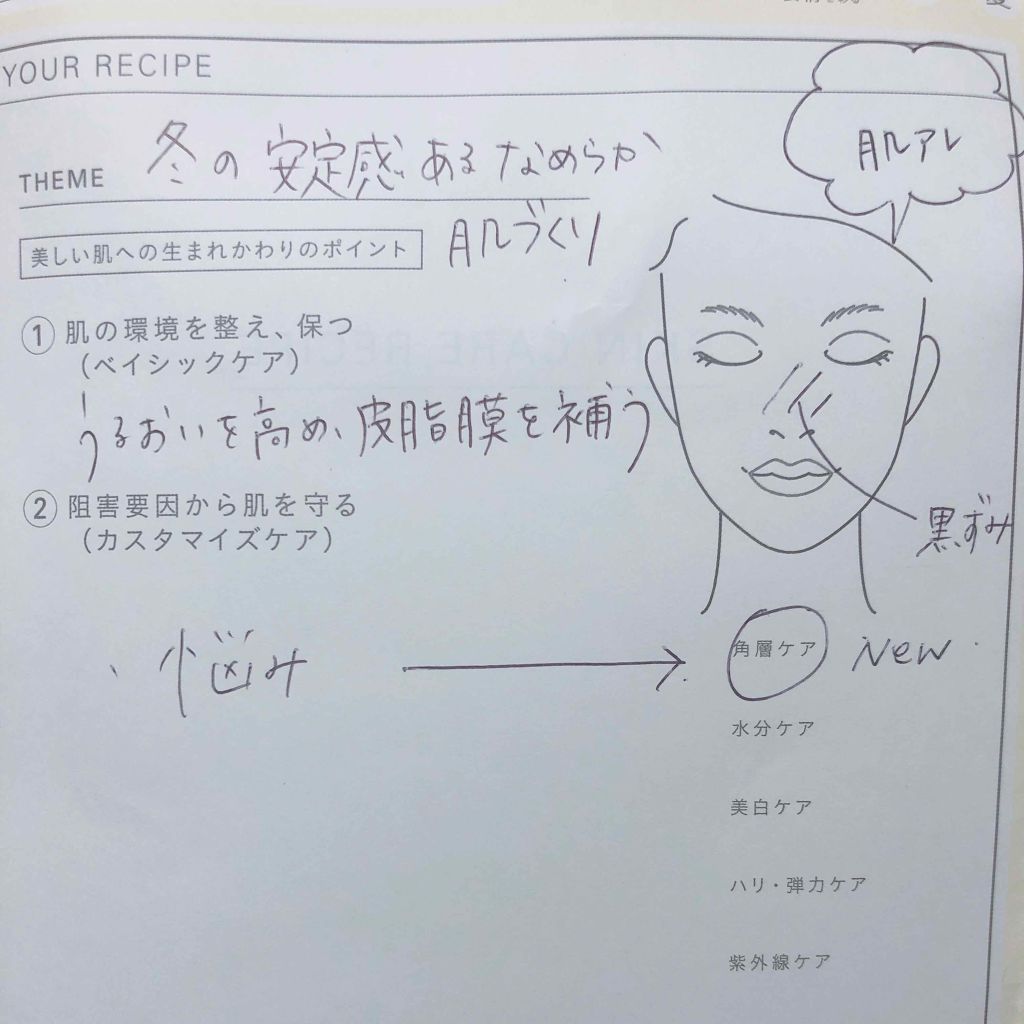 YOUR RECIPE
THEME 冬の安定感あるなめらか
肌づくり
美しい肌への生まれかわりのポイント
肌アレ
① 肌の環境を整え、保つ
(ベイシックケア)
うるおいを高め、皮脂膜を補う
② 阻害要因から肌を守る
(カスタマイズケア)
黒ずみ
悩み → 角層ケア New
水分ケア
美白ケア
ハリ・弾力ケア
紫外線ケア